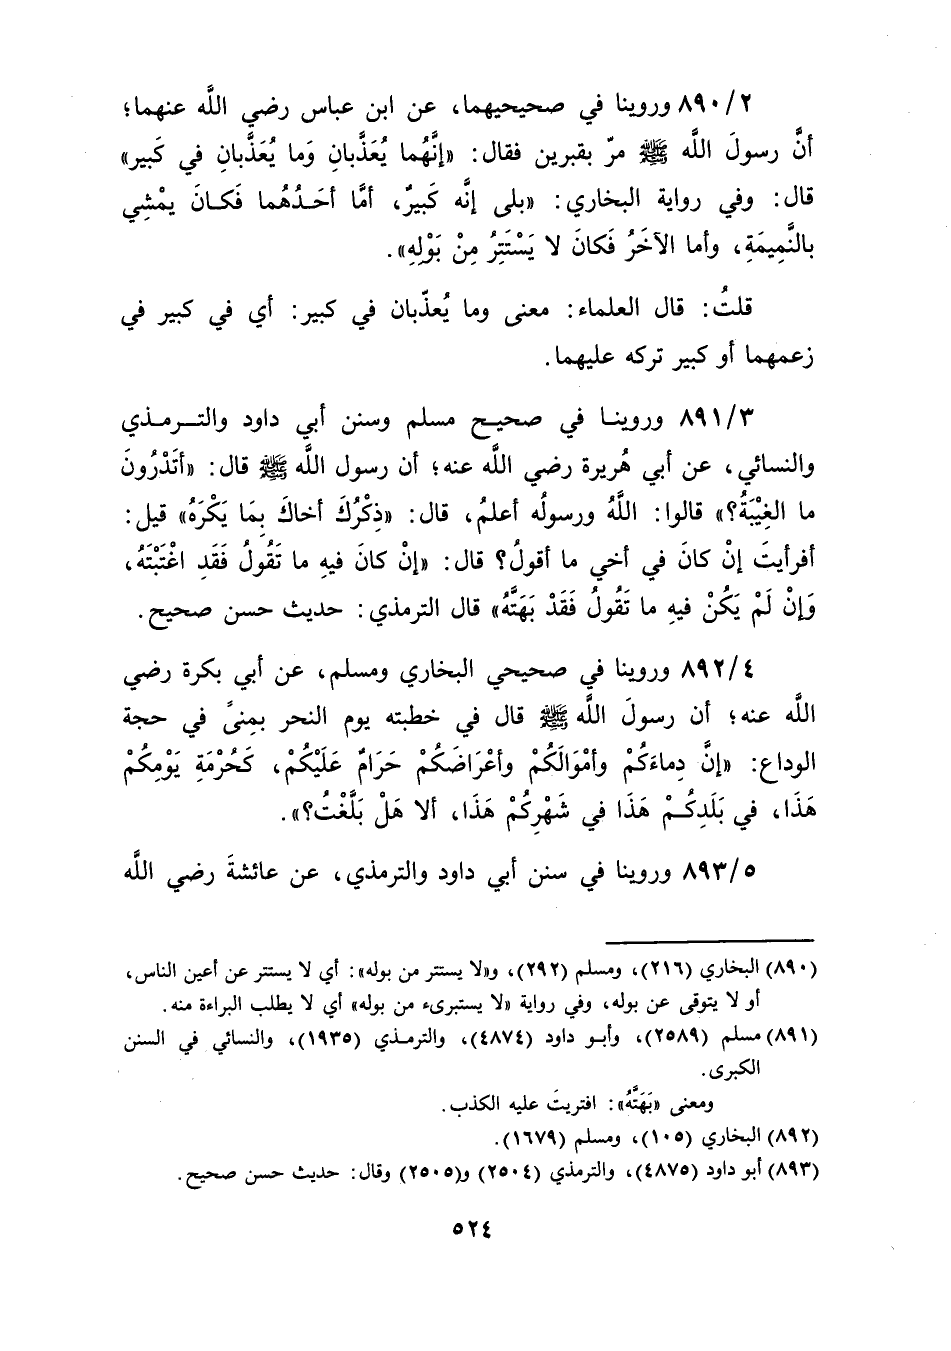 ٨٩٠/٢ وروينا في صحيحيهما، عن ابن عباس رضي اللَّه عنهما؛
أنَّ رسولَ اللَّه ﷺ مرّ بقبرين فقال: «إنَّهُما يُعَذَّبانِ وَما يُعَذَّبانِ في كَبير»
قال: وفي رواية البخاري: «بلى إنَّه كَبيرٌ، أمَّا أحَدُهُما فَكانَ يمْشِي
بالنَّمِيمَةِ، وأما الآخَرُ فَكانَ لا يَسْتَتِرُ مِنْ بَوْلِهِ».
قلتُ: قال العلماء: معنى وما يُعذّبان في كبير: أي في كبير في
زعمهما أو كبير تركه عليهما.
٨٩١/٣ وروينا في صحيح مسلم وسنن أبي داود والترمذي
والنسائي، عن أبي هُريرة رضي اللَّه عنه؛ أن رسول اللَّه ﷺ قال: «أتَدْرُونَ
ما الغِيْبَةُ؟» قالوا: اللَّهُ ورسولُه أعلمُ، قال: «ذِكْرُكَ أخاكَ بِمَا يَكْرَهُ» قيل:
أفرأيتَ إنْ كانَ في أخي ما أقولُ؟ قال: «إنْ كانَ فيهِ ما تَقُولُ فَقَدِ اغْتَبْتَهُ،
وَإنْ لَمْ يَكُنْ فيهِ ما تَقُولُ فَقَدْ بَهَتَّهُ» قال الترمذي: حديث حسن صحيح.
٨٩٢/٤ وروينا في صحيحي البخاري ومسلم، عن أبي بكرة رضي
اللَّه عنه؛ أن رسولَ اللَّه ﷺ قال في خطبته يوم النحر بمِنىً في حجة
الوداع: «إنَّ دِماءَكُمْ وأمْوَالَكُمْ وأعْرَاضَكُمْ حَرَامٌ عَلَيْكُمْ، كَحُرْمَةِ يَوْمِكُمْ
هَذَا، في بَلَدِكُمْ هَذَا في شَهْرِكُمْ هَذَا، ألا هَلْ بَلَّغْتُ؟».
٨٩٣/٥ وروينا في سنن أبي داود والترمذي، عن عائشةَ رضي اللَّه
(٨٩٠) البخاري (٢١٦)، ومسلم (٢٩٢)، و«لا يستتر من بوله»: أي لا يستتر عن أعين الناس،
أو لا يتوقى عن بوله، وفي رواية «لا يستبرىء من بوله» أي لا يطلب البراءة منه.
(٨٩١) مسلم (٢٥٨٩)، وأبو داود (٤٨٧٤)، والترمذي (١٩٣٥)، والنسائي في السنن
الكبرى.
ومعنى «بَهَتَّهُ»: افتريتَ عليه الكذب.
(٨٩٢) البخاري (١٠٥)، ومسلم (١٦٧٩).
(٨٩٣) أبو داود (٤٨٧٥)، والترمذي (٢٥٠٤) و(٢٥٠٥) وقال: حديث حسن صحيح.
٥٢٤